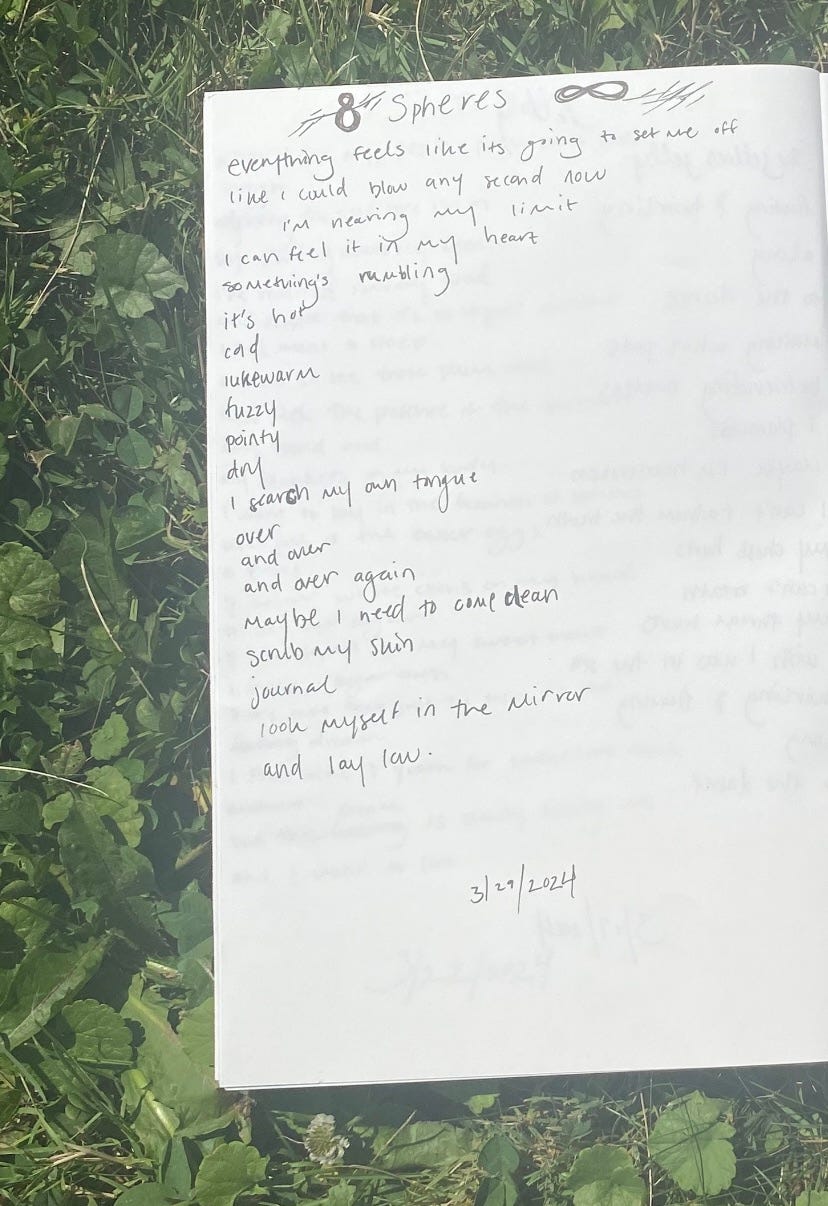 8 Spheres ∞
everything feels like its going to set me off
like i could blow any second now
I'm nearing my limit
I can feel it in my heart
something's rumbling
it's hot
cold
lukewarm
fuzzy
pointy
dry
I search my own tongue
over
and over
and over again
Maybe I need to come clean
scrub my skin
journal
look myself in the mirror
and lay low.
3/29/2024